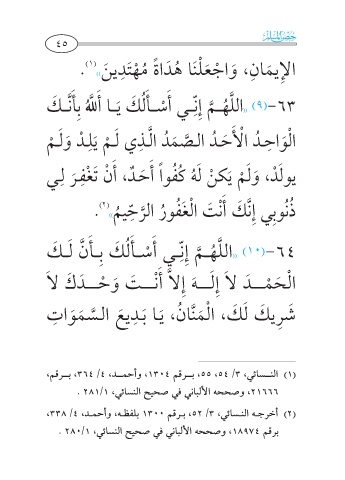 حصن المسلم
٤٥
الإِيمَانِ، وَاجْعَلْنَا هُدَاةً مُهْتَدِينَ»(١).
٦٣-(٩) «اللَّهُمَّ إِنِّي أَسْأَلُكَ يَا أَللَّهُ بِأَنَّكَ
الْوَاحِدُ الْأَحَدُ الصَّمَدُ الَّذِي لَمْ يَلِدْ وَلَمْ
يولَدْ، وَلَمْ يَكنْ لَهُ كُفُواً أَحَدٌ، أَنْ تَغْفِرَ لِي
ذُنُوبِي إِنَّكَ أَنْتَ الْغَفُورُ الرَّحِيمُ»(٢).
٦٤-(١٠) «اللَّهُمَّ إِنِّي أَسْأَلُكَ بِأَنَّ لَكَ
الْحَمْدَ لاَ إِلَهَ إِلاَّ أَنْتَ وَحْدَكَ لاَ
شَرِيكَ لَكَ، الْمَنَّانُ، يَا بَدِيعَ السَّمَوَاتِ
(١) النسائي، ٣/ ٥٤، ٥٥، برقم ١٣٠٤، وأحمد، ٤/ ٣٦٤، برقم،
٢١٦٦٦، وصححه الألباني في صحيح النسائي، ٢٨١/١ .
(٢) أخرجه النسائي، ٣/ ٥٢، برقم ١٣٠٠ بلفظه، وأحمد، ٤/ ٣٣٨،
برقم ١٨٩٧٤، وصححه الألباني في صحيح النسائي، ٢٨٠/١ .